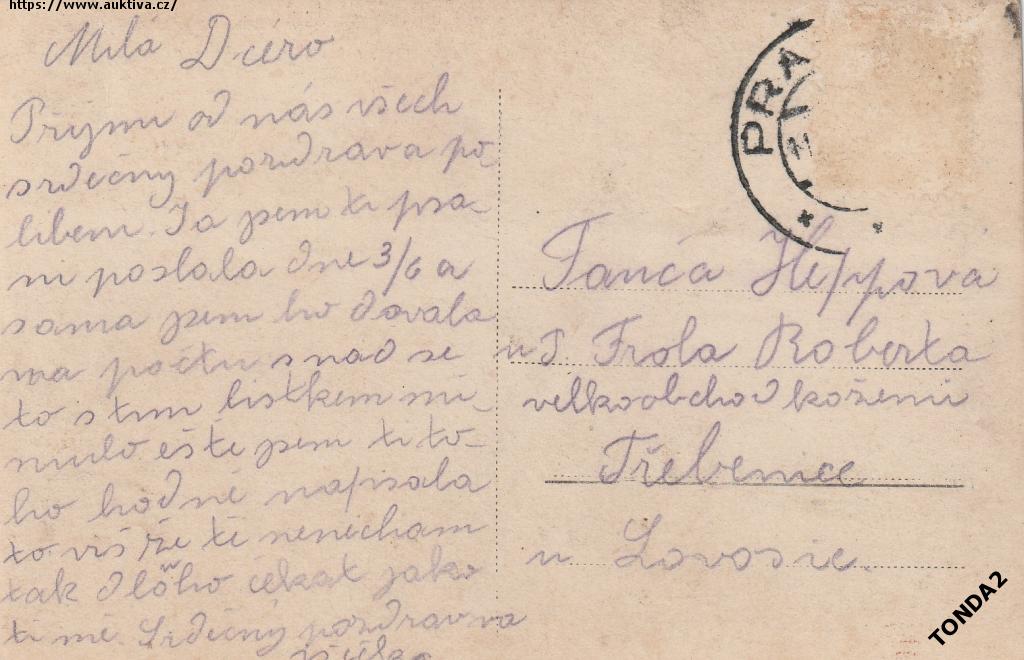 https://www.auktiva.cz/
Milá Dcéro
Přijmi od nás všech
srdečný pozdrav a po-
libem. Ja jsem ti psa-
ni poslala dne 3/6 a
sama jsem ho davala
na počtu snad se
to s tim listkem mi-
nulo ešte jsem ti to-
ho hodně napsala
to viš že tě nenecham
tak dlouho čekat jako
ti mě. Srdečný pozdrav
PRA
Fanča Heppová
u P. Frola Roberta
velkoobchod kožemi
Třebenice
u Lovosic.
TONDA2